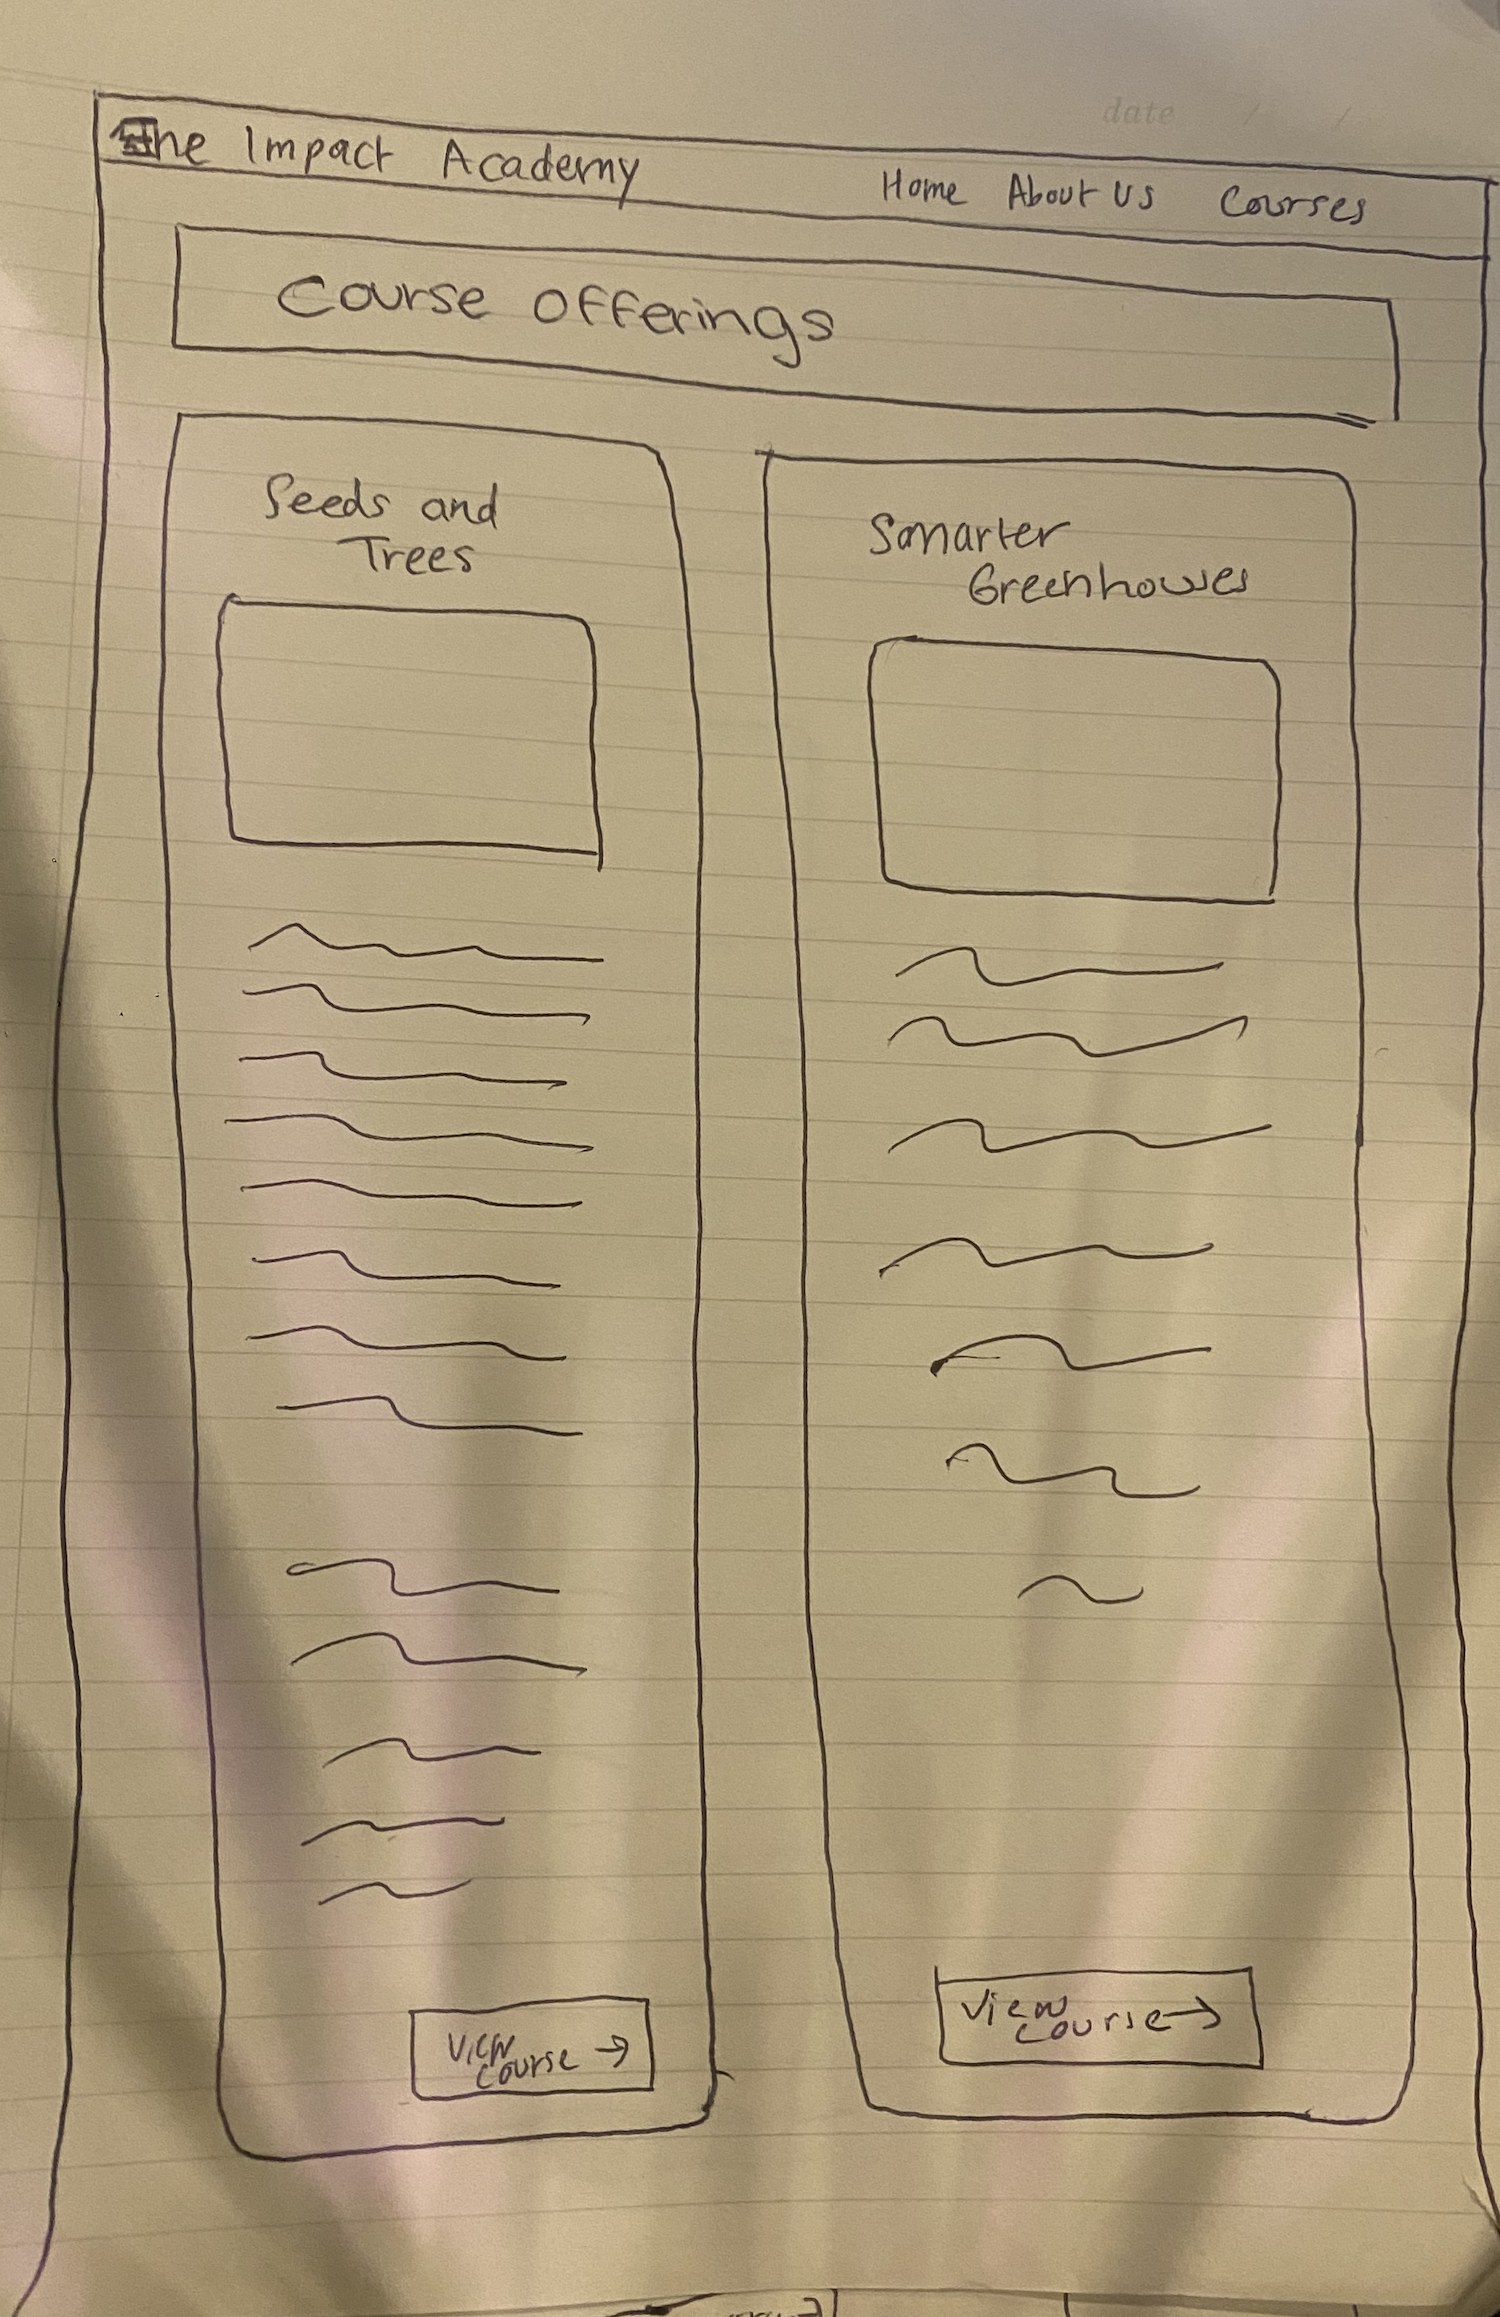 date / /
The Impact Academy
Home About Us Courses
Course Offerings
Seeds and
Trees
Smarter
Greenhouses
View
Course →
View
Course →